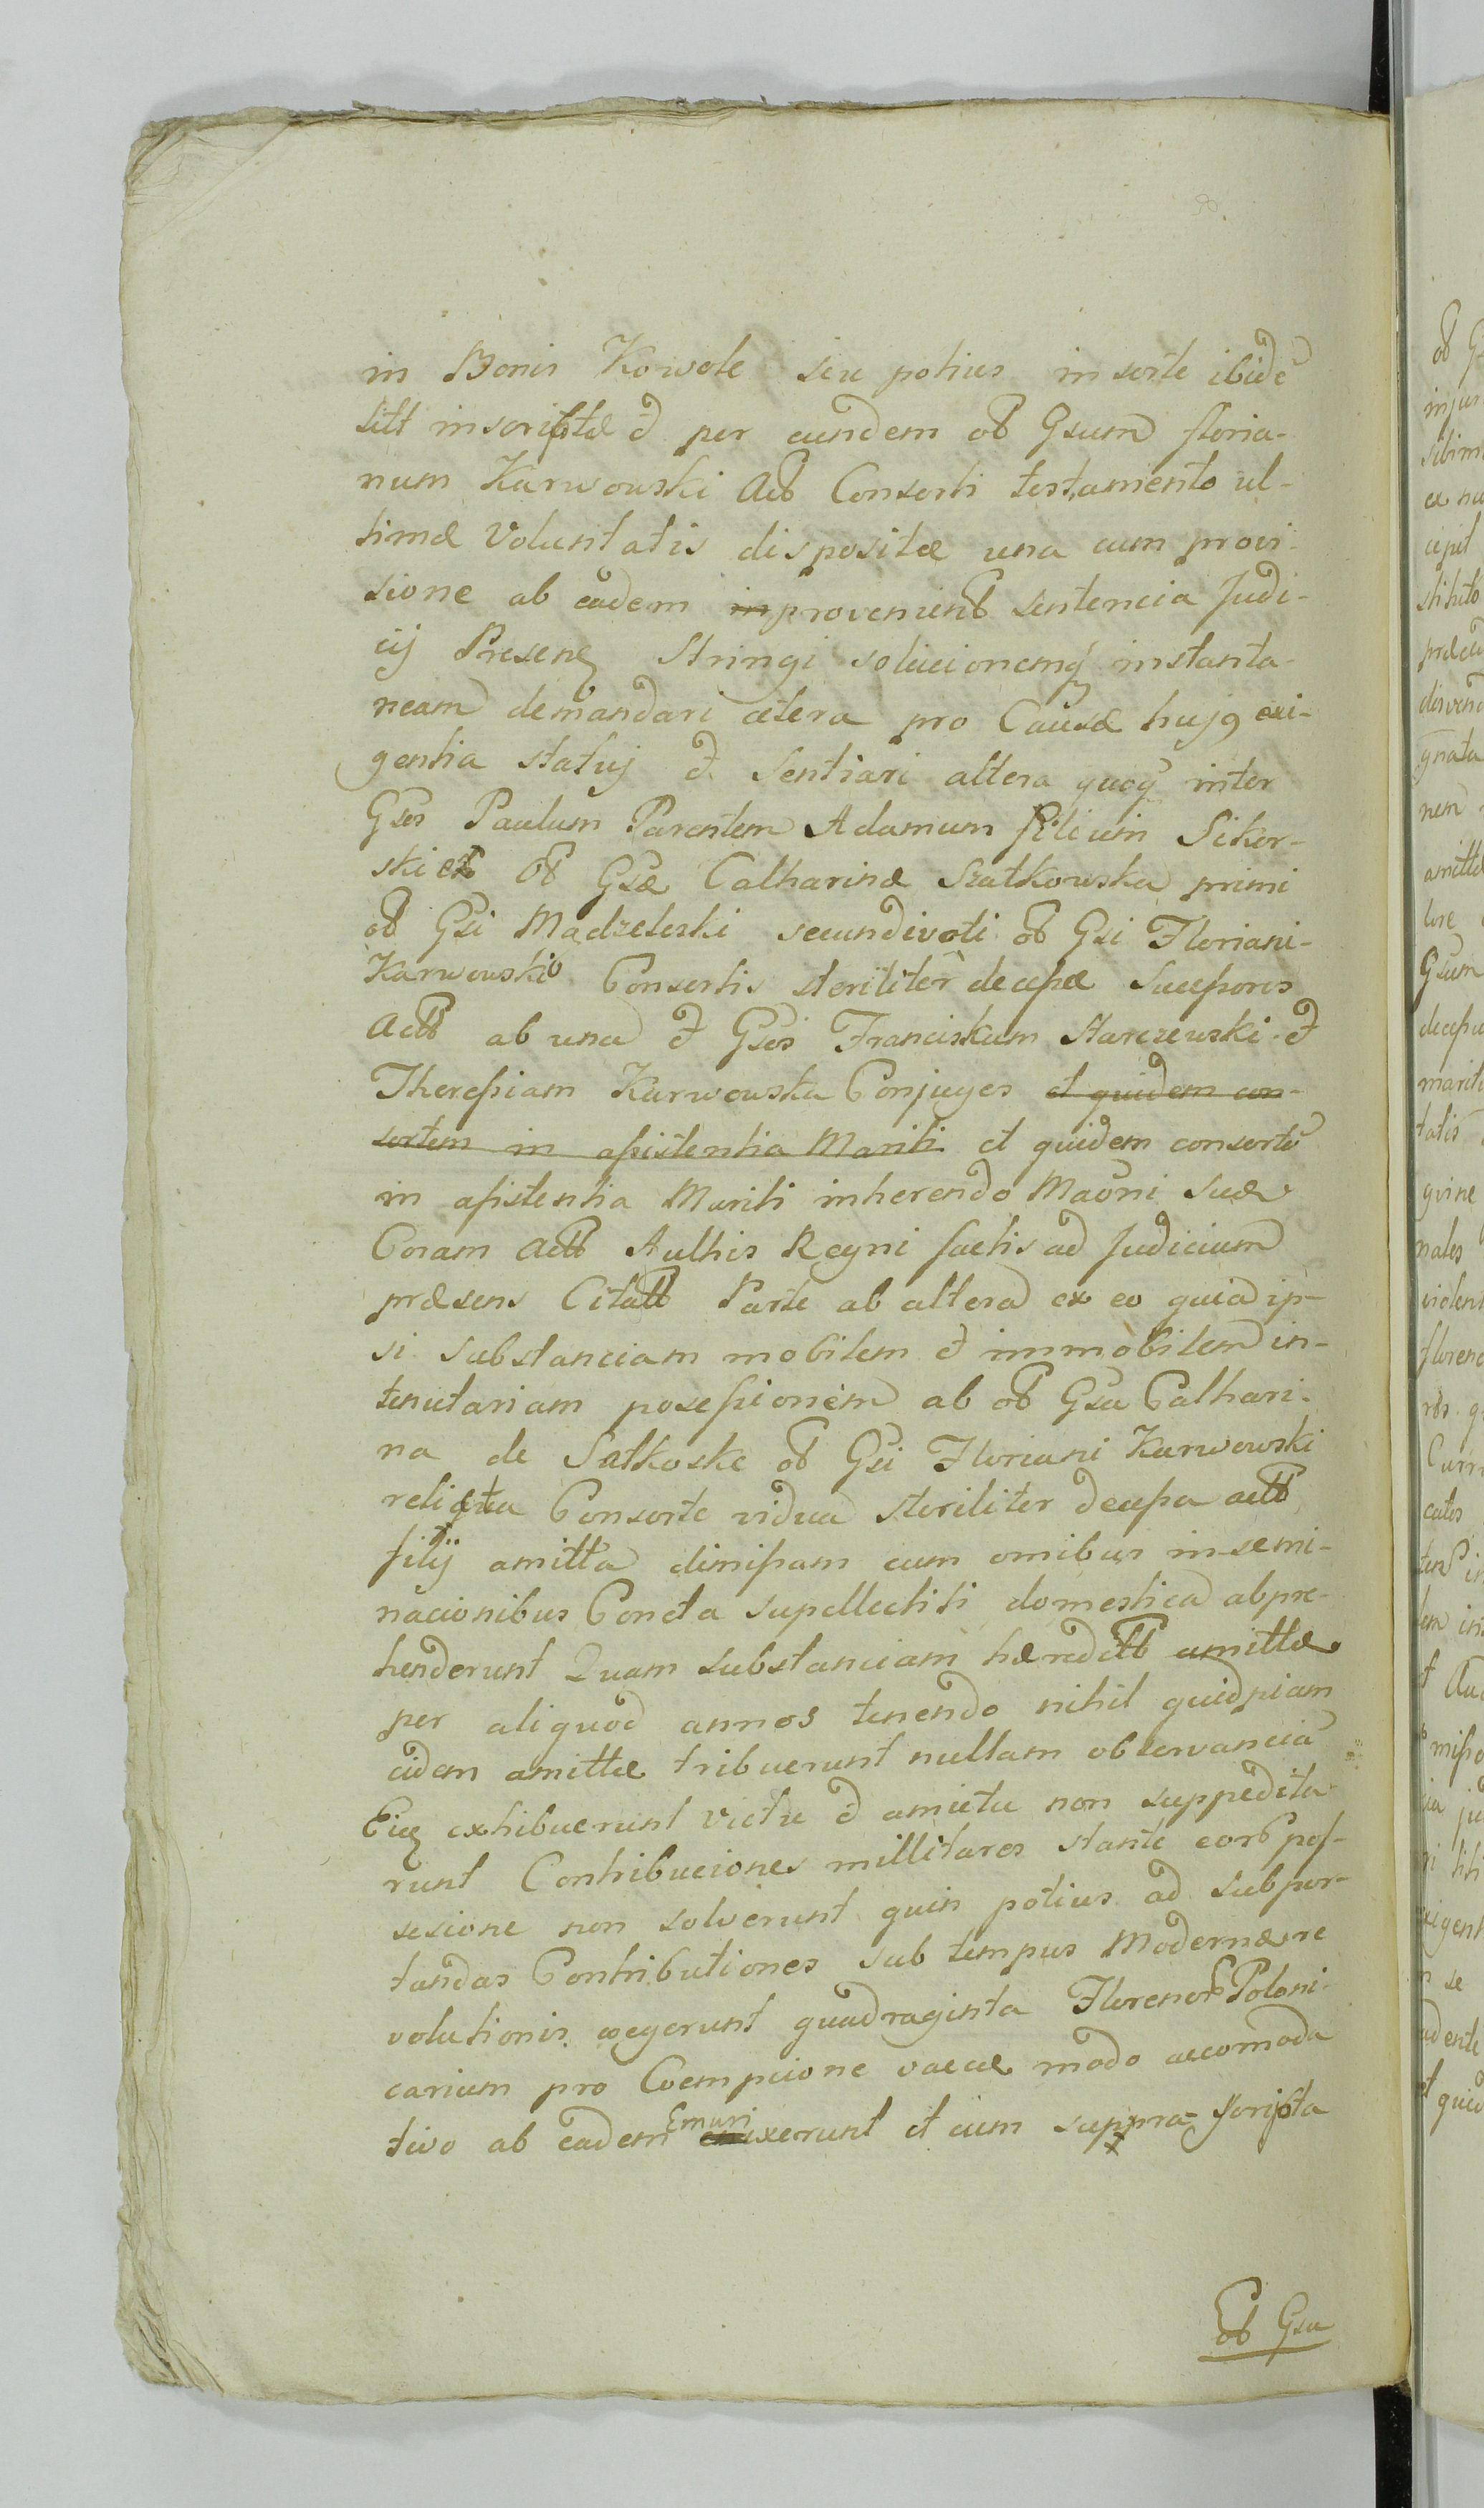 in Bonis Kowole seu potius in sorte ibide
sitt inscriptæ & per eundem ob Gsum floria-
num Karwowski Actb Consorti testamento ul-
timæ Voluntatis dispositæ una cum provi-
sione ab eadem provenientb sentencia Judi-
cij Presens Stringi solucionemq instanta-
neam demandari cetera pro Causæ hujq exi-
gentia statuj & Sentiari altera quoq inter
Gsos Paulum Parentem Adamum filium Sikor-
ski et Ob Gsæ Catharinæ Szatkowska primi
ob Gsi Mądzelerski secundivoti ob Gsi Floriani
Karwowski Consortis steriliter decessæ Sucessores
Actb ab una & Gsos Franciskum Starczewski &
Theressiam Karwowska Conjuges et quidem con-
sortem in assistentia Mariti et quidem consorte
in assistentia Mariti inherendo Maoni suæ
Coram Acttb Authis Regni factis ad Judicium
præsens Citattb Parte ab altera ex eo quia ip-
si substanciam mobilem & immobilem in-
tenutariam posessionem ab ob Gsa Cathari-
na de Satkoske ob Gsi Floriani Karwowski
relicta Consorte vidua steriliter decessa acttb
filij amitta dimissam cum omibus insemi-
nacionibus Concta supellectili domestica abpre-
henderunt Quam substanciam hæredittb amittæ
per aliquod annos tenendo nihil quidpiam
eidem amittæ tribuerunt nullam observancia
Eiq exhibuerunt Victu & amictu non suppedita
runt Contribuciones millitares stante eorb pos-
sesione non solverunt quin potius ad subpor-
tandas Contributiones sub tempus Modernæ re
volutionis coegerunt quadraginta Florenorb Poloni-
carium pro Coempcione vaccæ modo accomoda
tivo ab eadem Emunxerunt et cum suppra scripta
Ob Gsa